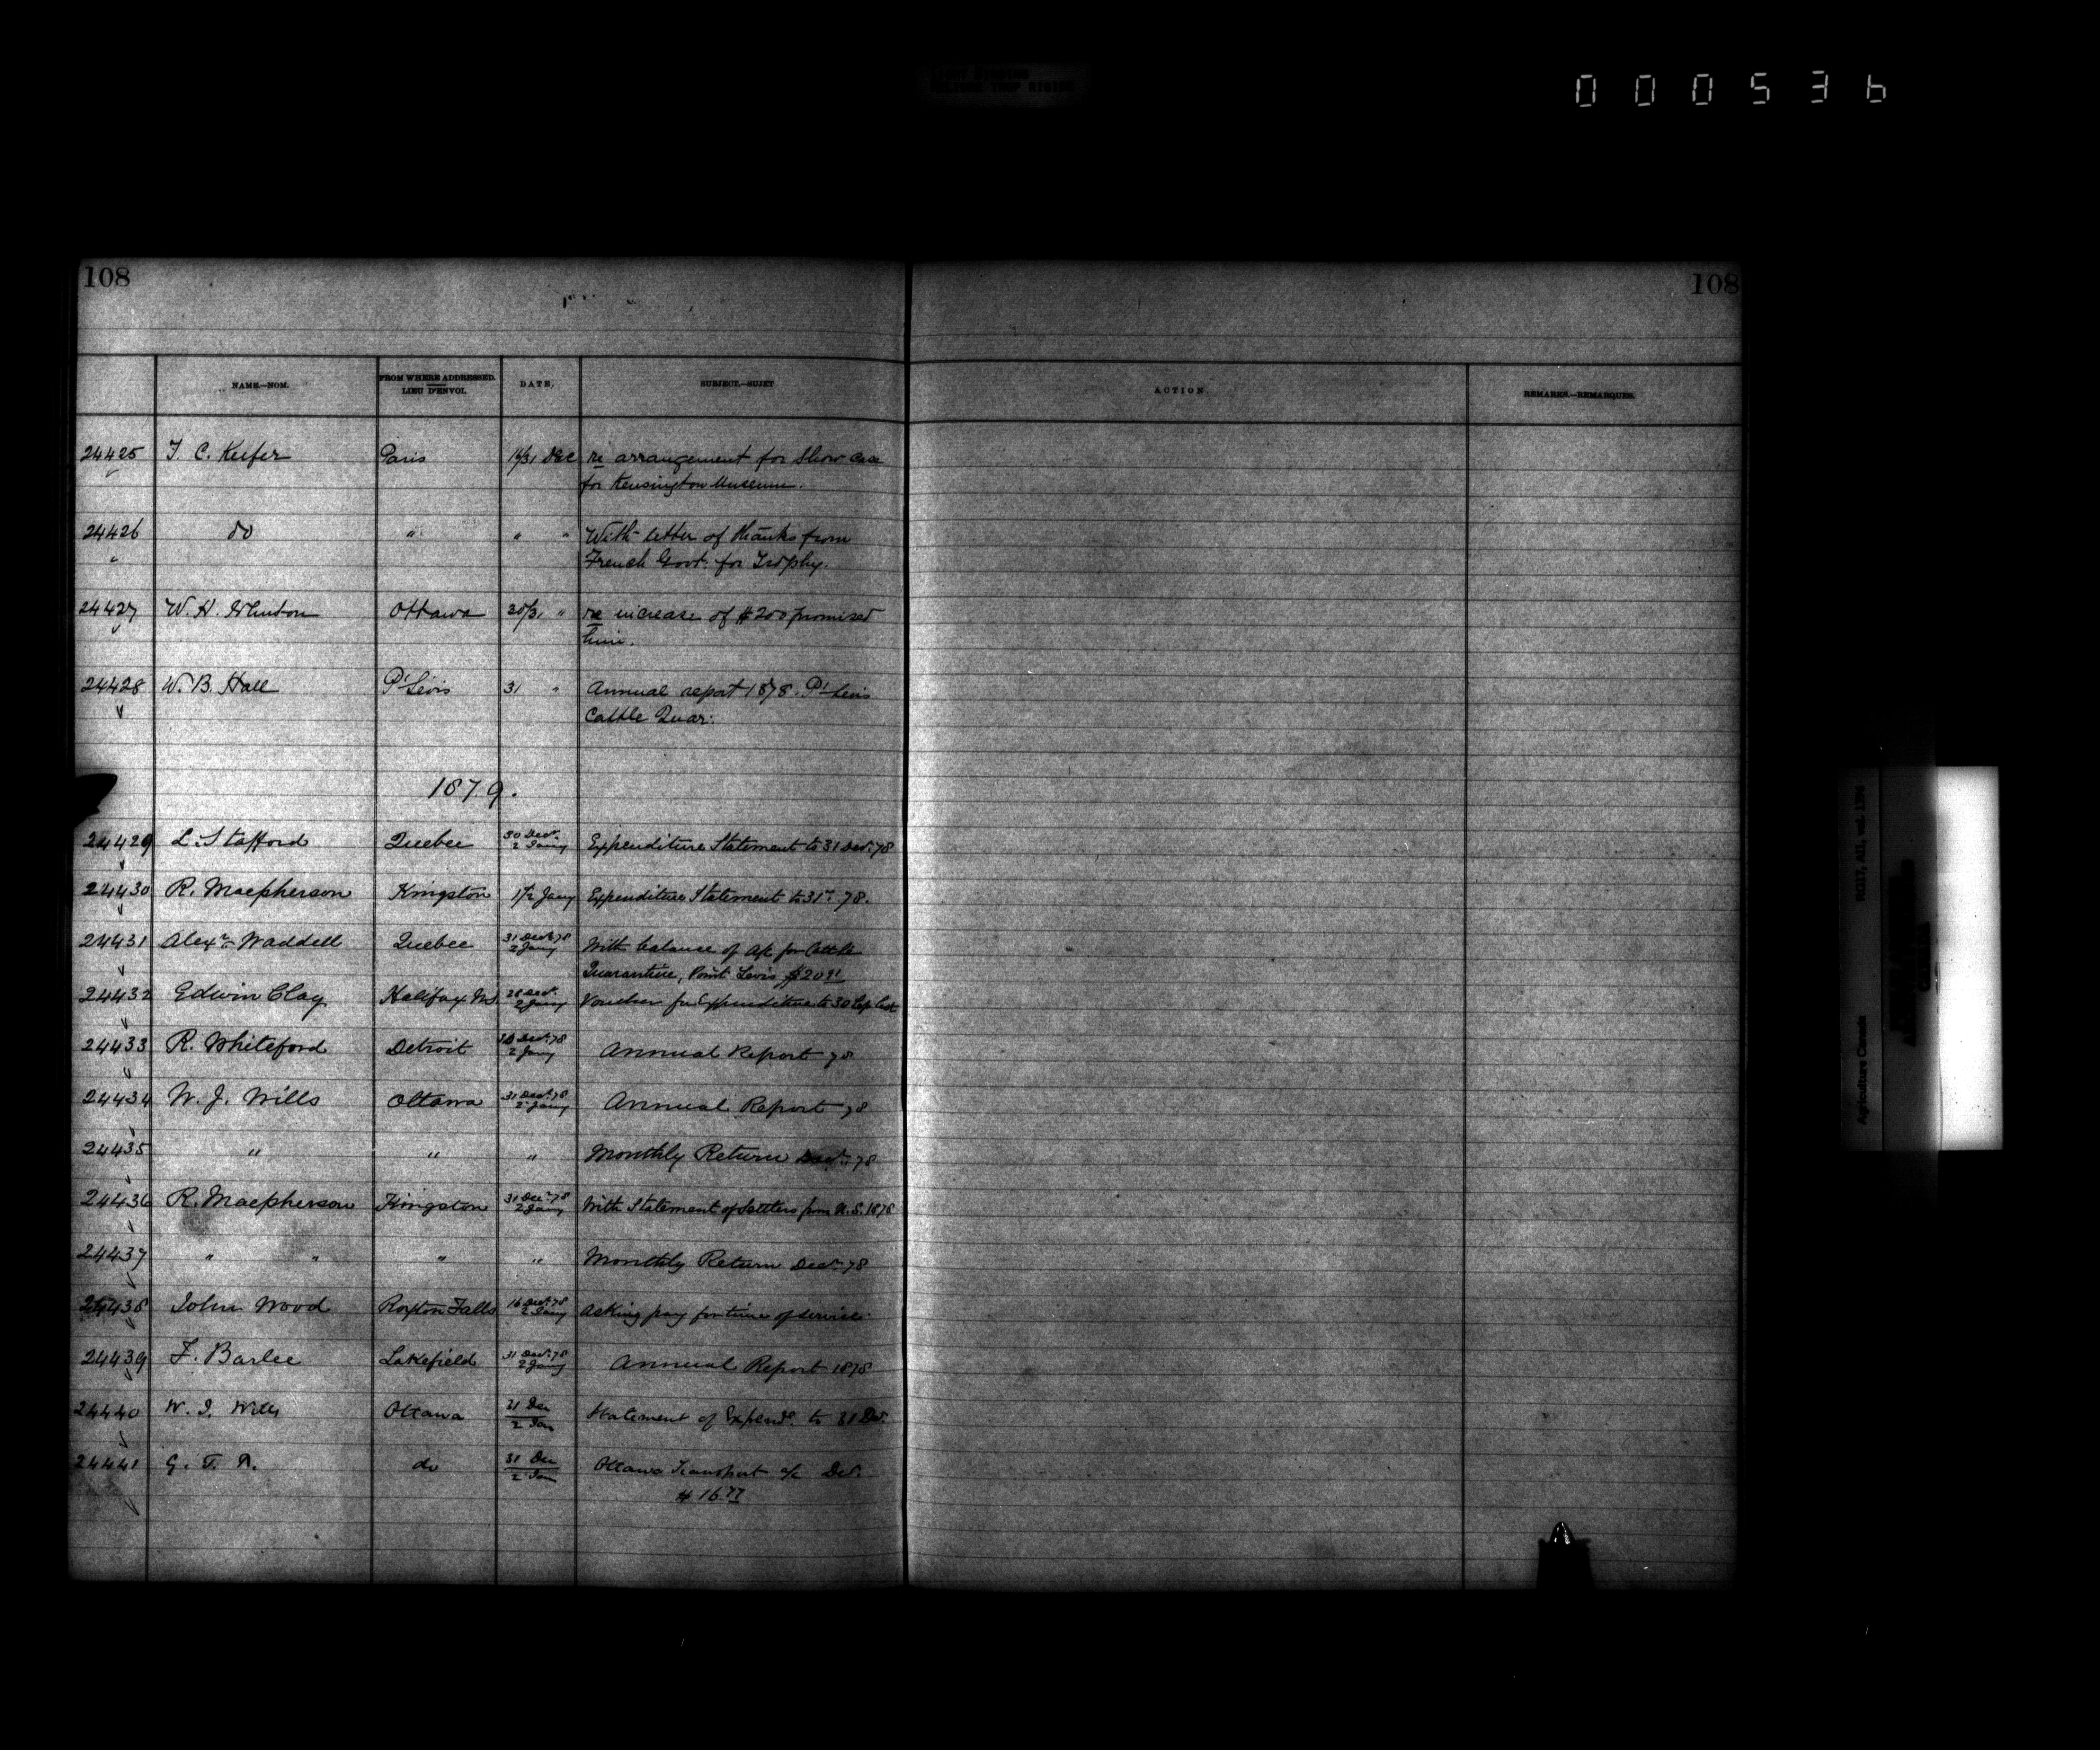 000536
108 108
NAME.—NOM. FROM WHERE ADDRESSED. LIEU D'ENVOI. DATE. SUBJECT.—SUJET ACTION. REMARKS.—REMARQUES.
24425 T. C. Keefer Paris 16/31 Dec re arrangement for Show Case
for Kensington Museum.
24426 do " " " With letter of thanks from
French Govt. for Trophy.
24427 W. H. Ottawa 30/31 " re increase of $200 promised
him.
24428 W. B. Hall Pt Levis 31 " Annual report 1878. Pt Levis
Cattle Quar.
1879.
24429 L. Stafford Quebec 30 Decr. 2 Jany Expenditure Statement to 31 Decr. 78
24430 R. Macpherson Kingston 1/2 Jany Expenditure Statement to 31st 78.
24431 Alexr. Waddell Quebec 31 Decr. 78 2 Jany With balance of a/c for Cattle
Quarantine, Point Levis $20
24432 Edwin Clay Halifax N.S. 28 Decr. 2 Jany Voucher for Expenditure to 30 Sep last
24433 R. Whiteford Detroit Decr. 78 2 Jany Annual Report 78
24434 W. J. Wills Ottawa 31 Decr. 78 2 Jany Annual Report 78
24435 " " " Monthly Return Decr. 78
24436 R. Macpherson Kingston 31 Decr. 78 2 Jany With Statement of Settlers from U.S. 1878
24437 " " " " Monthly Return Decr. 78
24438 John Wood Roxton Falls 16 Decr. 78 2 Jany Asking pay for time of service.
24439 F. Barlee Lakefield 31 Decr. 78 2 Jany Annual Report 1878
24440 W. J. Wills Ottawa 31 Dec 2 Jan Statement of Expend. to 31 Dec.
24441 G. T. R. do 31 Dec 2 Jan Ottawa Transport a/c Dec.
$16.77
RG17, AII, vol. 1786
Agriculture Canada